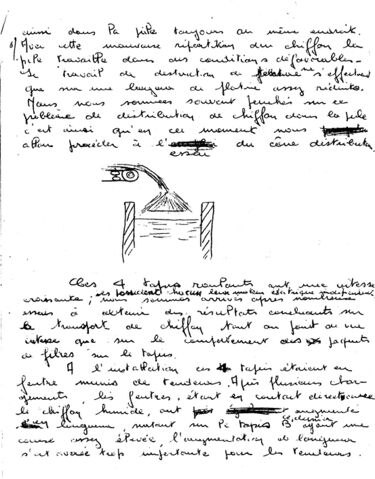 ainsi dans la pile toujours au même endroit.
Avec cette mauvaise répartition du chiffon la
pile travaille dans des conditions défavorables.
Le travail de destruction de s'effectue
que sur une longueur de platine assez réduite.
Nous nous sommes souvent penchés sur ce
problème de distribution de chiffon dans la pile
c'est ainsi qu'en ce moment nous
allons procéder à l' du cône distributeur
essai
Ces 4 tapis roulants ont une vitesse
ces possèdent leur moteur électrique indépendant
croissante ; nous sommes arrivés après nombreux
essais à obtenir des résultats concluants sur
le transport de chiffon tant au point de vue
vitesse que sur le comportement des paquets
de fibres sur le tapis.
A l'installation ces 4 tapis étaient en
feutre munis de tendeurs. Après plusieurs chan-
gements, les feutres, étant en contact direct avec
le chiffon humide, ont augmenté
longueur, surtout sur le tapis 3 ayant une
course assez élevée, l'augmentation de longueur
s'est avérée trop importante pour les tendeurs.